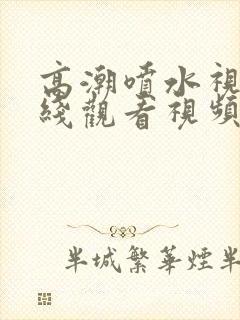 高潮噴水視
綫觀看視頻
半城繁華煙半